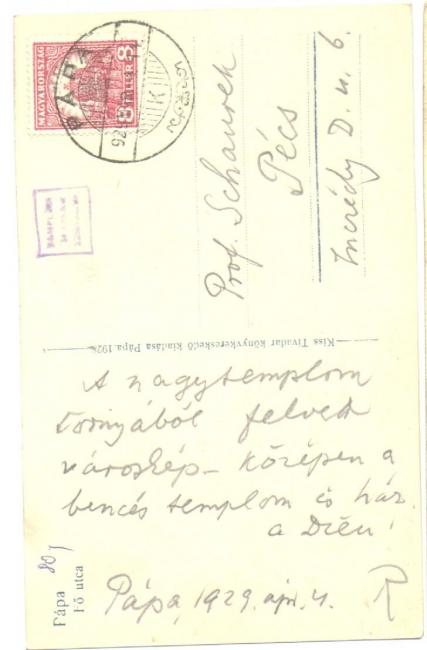 MAGYARORSZÁG
8 FILLÉR 8
PÁPA
Prof. Schaurek
Pécs
Incrédy D. u. 6.
Kiss Tivadar könyvkereskedő kiadása Pápa 1928
A nagytemplom
tornyából felvett
városkép – középen a
bencés templom és ház
a Diéu!
Pápa, 1929. ápr. 4.
R
Pápa
Fő utca